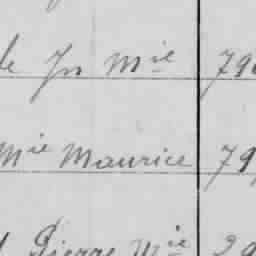 le Jn Mie 79
Mie Maurice 79
Pierre Mie 29